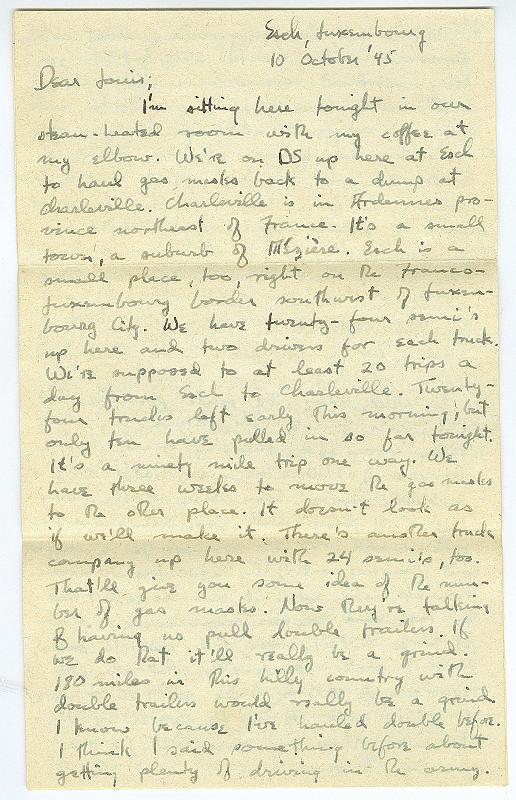 Esch, Luxembourg
10 October '45
Dear Louis;
I'm sitting here tonight in our
steam-heated room with my coffee at
my elbow. We're on DS up here at Esch
to haul gas masks back to a dump at
Charleville. Charleville is in Ardennes pro-
vince northeast of France. It's a small
town, a suburb of Mézière. Esch is a
small place, too, right on the Franco-
Luxembourg border southwest of Luxem-
bourg City. We have twenty-four semi's
up here and two drivers for each truck.
We're supposed to at least 20 trips a
day from Esch to Charleville. Twenty-
four trucks left early this morning; but
only ten have pulled in so far tonight.
It's a ninety mile trip one way. We
have three weeks to move the gas masks
to the other place. It doesn't look as
if we'll make it. There's another truck
company up here with 24 semi's, too.
That'll give you some idea of the num-
ber of gas masks. Now they're talking
of having us pull double trailers. If
we do that it'll really be a grind.
180 miles in this hilly country with
double trailers would really be a grind
I know because I've hauled double before.
I think I said something before about
getting plenty of driving in the army.